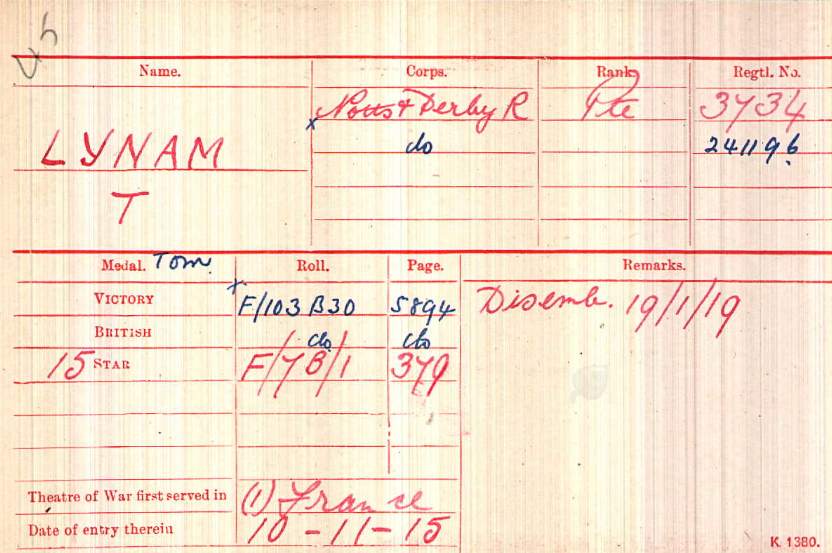 45
Name. Corps. Rank Regtl. No.
LYNAM Notts & Derby R Pte 3734
x do 241196
T
Medal. Tom Roll. Page. Remarks.
VICTORY x F/103 B30 5894 Disemb. 19/1/19
BRITISH do do
15 STAR F/7B/1 379
Theatre of War first served in (1) France
Date of entry therein 10-11-15
K. 1380.